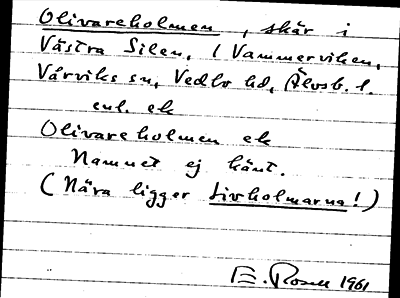 Olivareholmen, skär i
Västra Silen, i Vammerviken,
Vårviks sn, Vedbo hd, Älvsb. l.
enl. ek
Olivareholmen ek
Namnet ej känt.
(Nära ligger Livholmarna!)
E. Rosell 1961